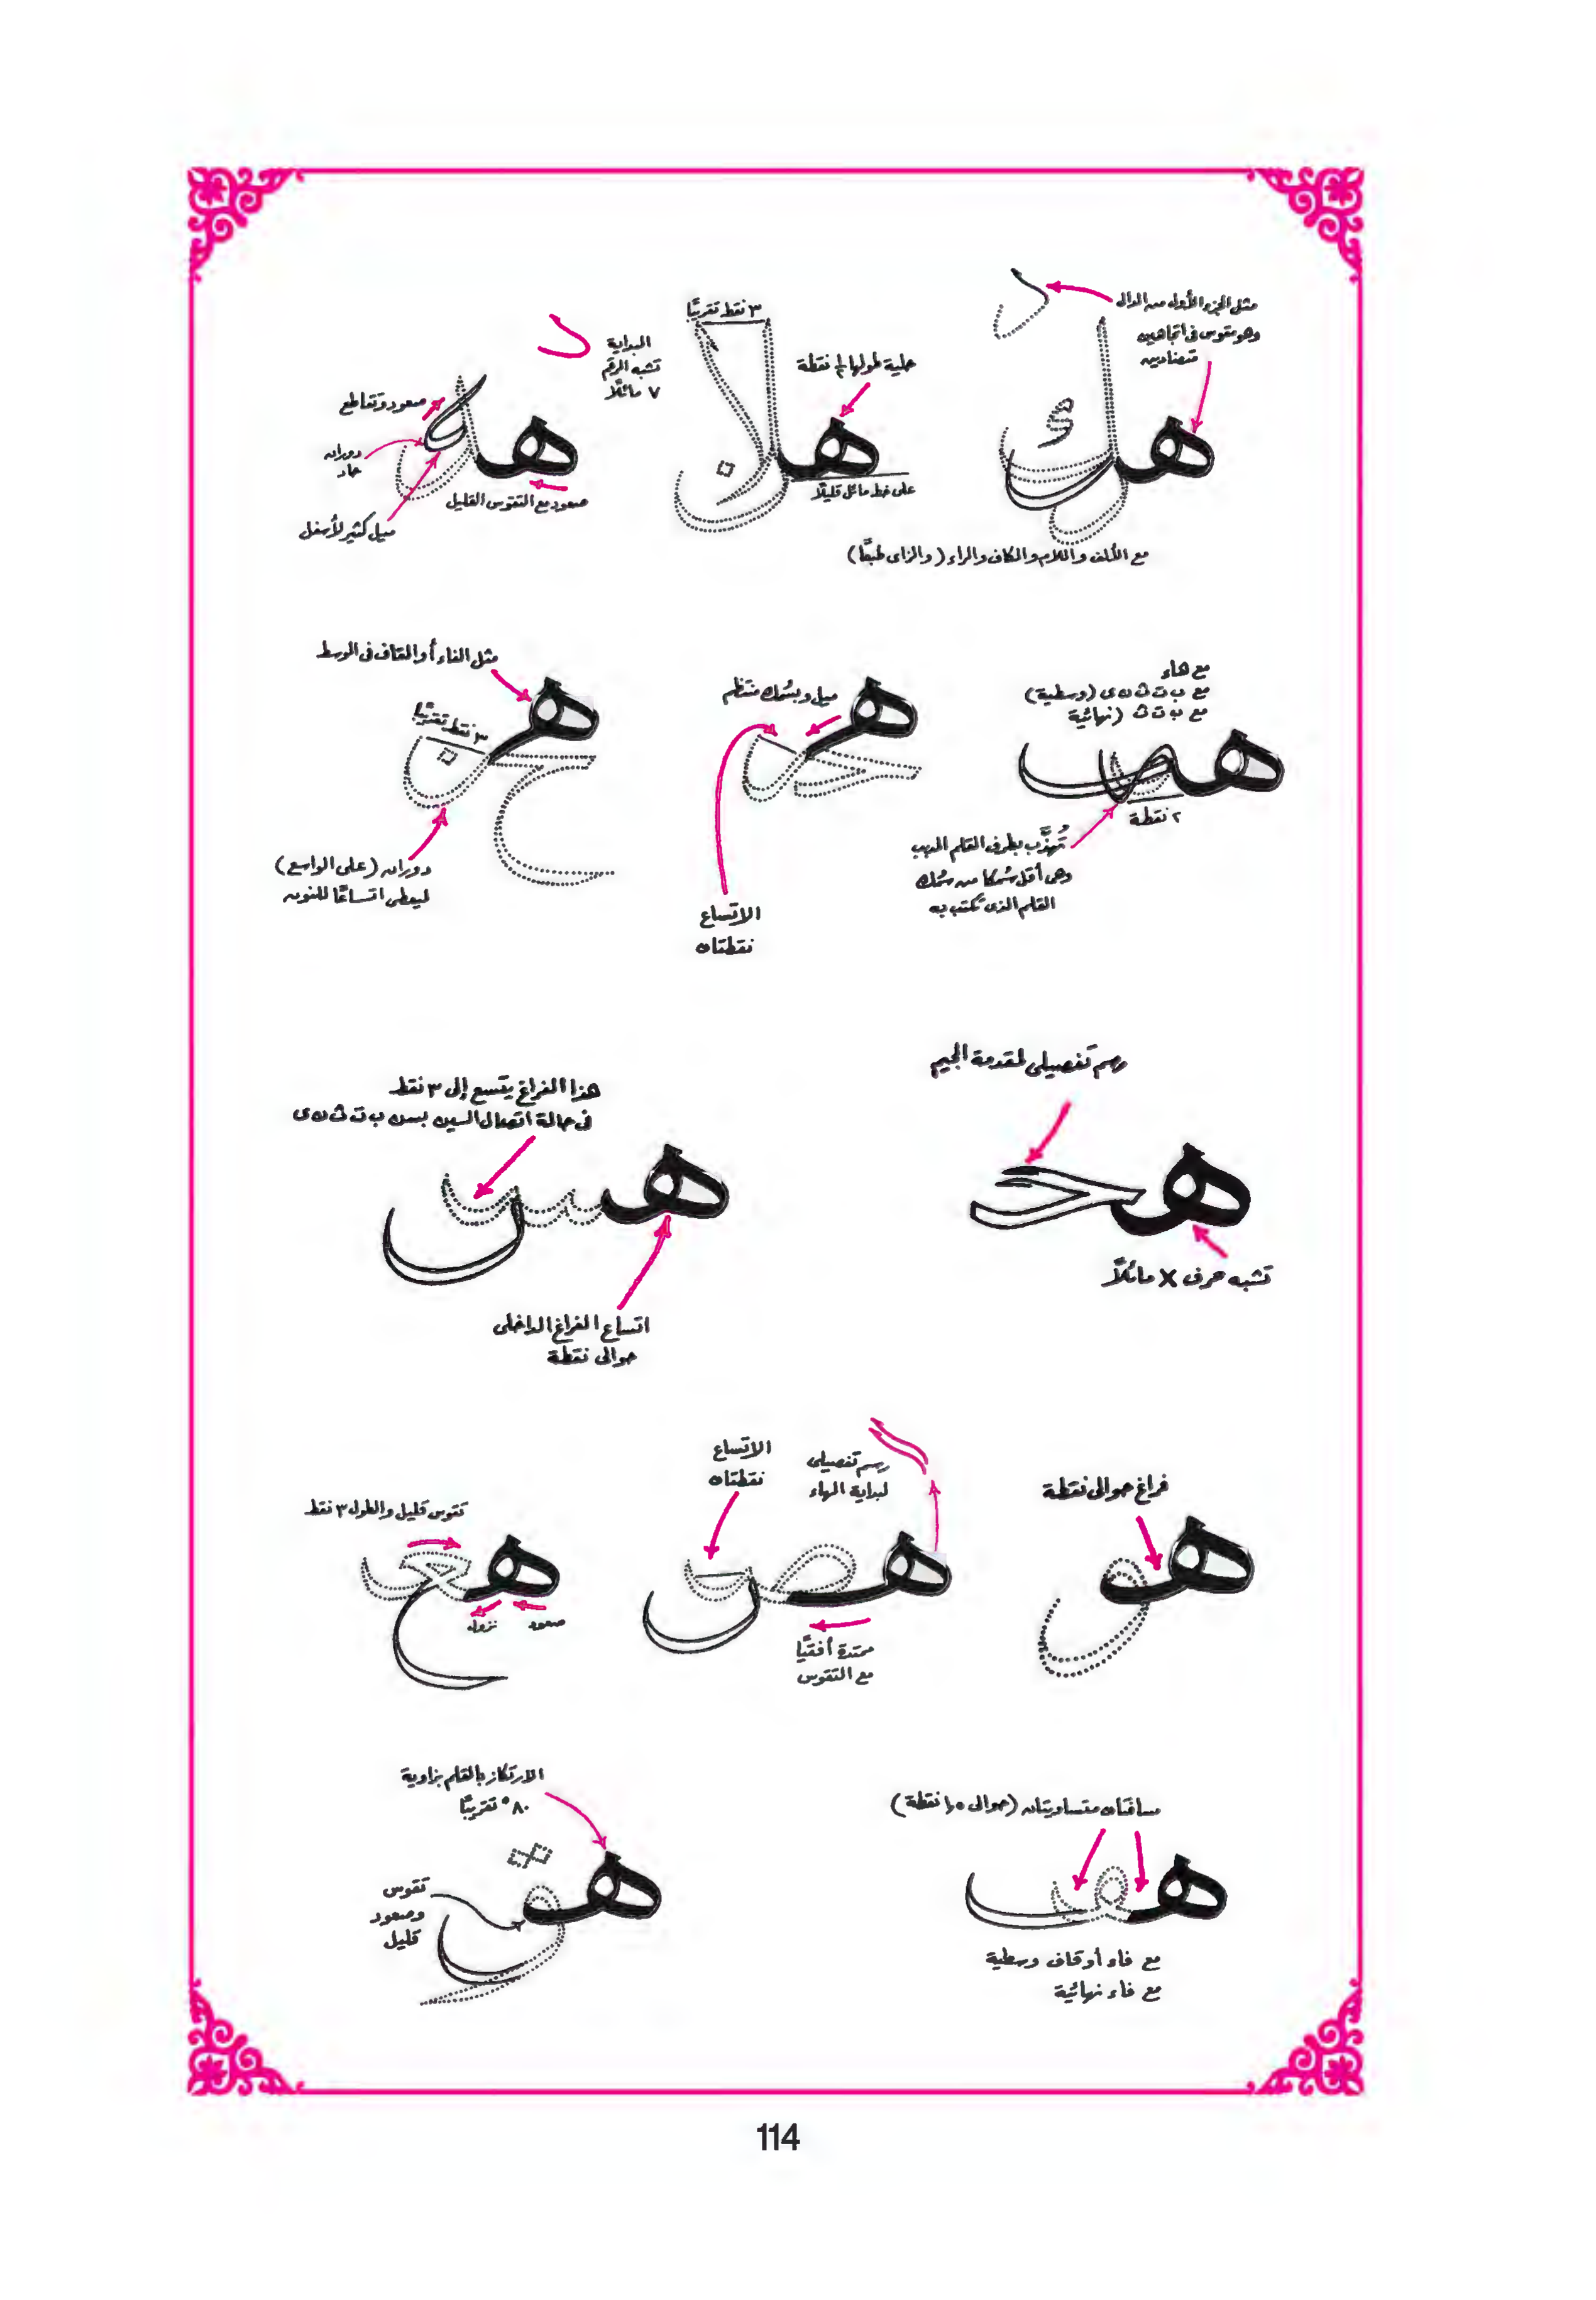 مثل الجزء الأول من الدال
وهو مقوس فى اتجاهين
متضادين
٣ نقط تقريبًا
حلية طولها ½ نقطة
على خط مائل قليلاً
البداية
تشبه الرقم
٧ مائلاً
صعود وتقاطع
دوران
حاد
صعود مع التقوس القليل
ميل كثير لأسفل
مع الألف واللام والكاف والراء (والزاى طبعًا)
مع هاء
مع ب ت ث ن ى (وسطية)
مع ب ت ث (نهائية)
٢ نقطة
تُهذَّب بطرف القلم المدبب
وهى أقل سُمكا من سُمك
القلم الذى تكتب به
ميل وبسُمك منتظم
الاتساع
نقطتان
مثل الفاء أو القاف فى الوسط
٣ نقط تقريبًا
دوران (على الواسع)
ليعطى اتساعًا للنون
رسم تفصيلى لمقدمة الجيم
تشبه حرف X مائلاً
هذا الفراغ يتسع إلى ٣ نقط
فى حالة اتصال السين بسن ب ت ث ن ى
اتساع الفراغ الداخلى
حوالى نقطة
فراغ حوالى نقطة
رسم تفصيلى
لبداية الهاء
الاتساع
نقطتان
ممتدة أفقيًا
مع التقوس
تقوس قليل والطول ٣ نقط
صعود
نزول
مسافتان متساويتان (حوالى ١٫٥ نقطة)
مع فاء أو قاف وسطية
مع فاء نهائية
الارتكاز بالقلم بزاوية
٨٠° تقريبًا
تقوس
وصعود
قليل
هك
هلا
هـه
هو
هق
114